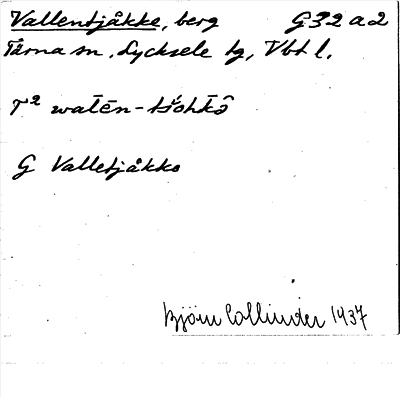 Vallentjåkke, berg G32a2
Tärna sn, Lycksele lg, Vbt l.
T² watēn-tśohkō̂
G Valletjåkko
Björn Collinder 1937